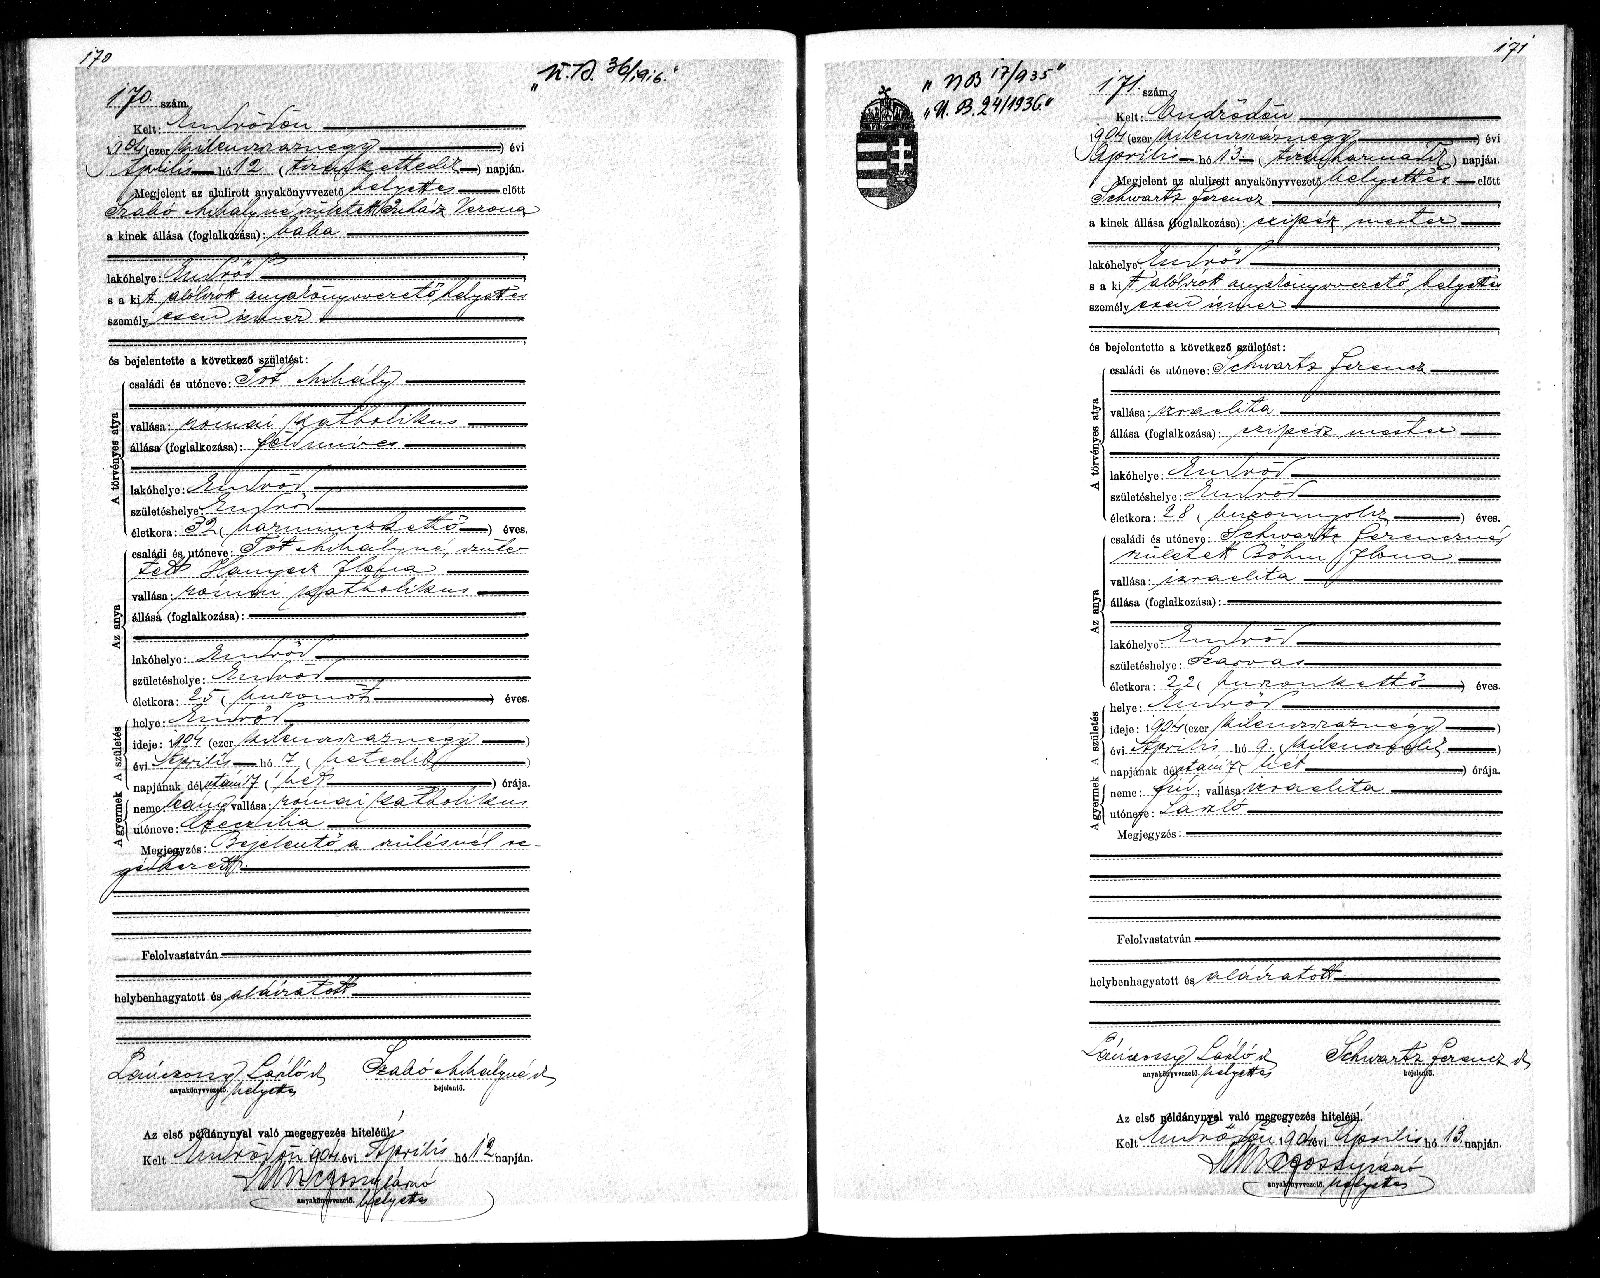 170
"U.B. 36/1916."
170. szám.
Kelt: Endrődön
1904 (ezer kilenczszáznégy) évi
Április hó 12 (tizenkettedik) napján.
Megjelent az alulirott anyakönyvvezető helyettes előtt
Szabó Mihályné született Juhász Verona
a kinek állása (foglalkozása): bába
lakóhelye: Endrőd
s a kit alólirott anyakönyvvezető helyettes
személyesen ismer
és bejelentette a következő születést:
A törvényes atya
családi és utóneve: Tót Mihály
vallása: római katholikus
állása (foglalkozása): földmives
lakóhelye: Endrőd
születéshelye: Endrőd
életkora: 32 (harminczkettő) éves.
Az anya
családi és utóneve: Tót Mihályné, szüle-
tett Hanyecz Ilona
vallása: római katholikus
állása (foglalkozása):
lakóhelye: Endrőd
születéshelye: Endrőd
életkora: 25 (huszonöt) éves.
A születés
helye: Endrőd
ideje: 1904 (ezer kilenczszáznégy)
évi Április hó 7 (hetedik)
napjának délutáni 7 (hét) órája.
A gyermek
neme: leány; vallása: római katholikus
utóneve: Czeczilia
Megjegyzés: Bejelentő a szülésnél se-
gédkezett.
Felolvastatván
helybenhagyatott és aláiratott
László s.k. Szabó Mihályné s.k.
anyakönyvvezető. helyettes bejelentő.
Az első példánynyal való megegyezés hiteléül.
Kelt Endrődön 1904 évi Április hó 12 napján.
anyakönyvvezető. helyettes
171
"U B 17/935"
"U. B. 24/1936"
171. szám.
Kelt: Endrődön
1904 (ezer kilenczszáznégy) évi
Április hó 13 (tizenharmadik) napján.
Megjelent az alulirott anyakönyvvezető helyettes előtt
Schwartz Ferencz
a kinek állása (foglalkozása): czipész mester
lakóhelye: Endrőd
s a kit alólirott anyakönyvvezető helyettes
személyesen ismer
és bejelentette a következő születést:
A törvényes atya
családi és utóneve: Schwartz Ferencz
vallása: izraelita
állása (foglalkozása): czipész mester
lakóhelye: Endrőd
születéshelye: Endrőd
életkora: 28 (huszonnyolcz) éves.
Az anya
családi és utóneve: Schwartz Ferenczné
született Bőhm Ilona
vallása: izraelita
állása (foglalkozása):
lakóhelye: Endrőd
születéshelye: Szarvas
életkora: 22 (huszonkettő) éves.
A születés
helye: Endrőd
ideje: 1904 (ezer kilenczszáznégy)
évi Április hó 9 (kilenczedik)
napjának délutáni 7 (hét) órája.
A gyermek
neme: fiú; vallása: izraelita
utóneve: László
Megjegyzés:
Felolvastatván
helybenhagyatott és aláiratott
László s.k. Schwartz Ferencz s.k.
anyakönyvvezető. helyettes bejelentő.
Az első példánynyal való megegyezés hiteléül.
Kelt Endrődön 1904 évi Április hó 13 napján.
anyakönyvvezető. helyettes